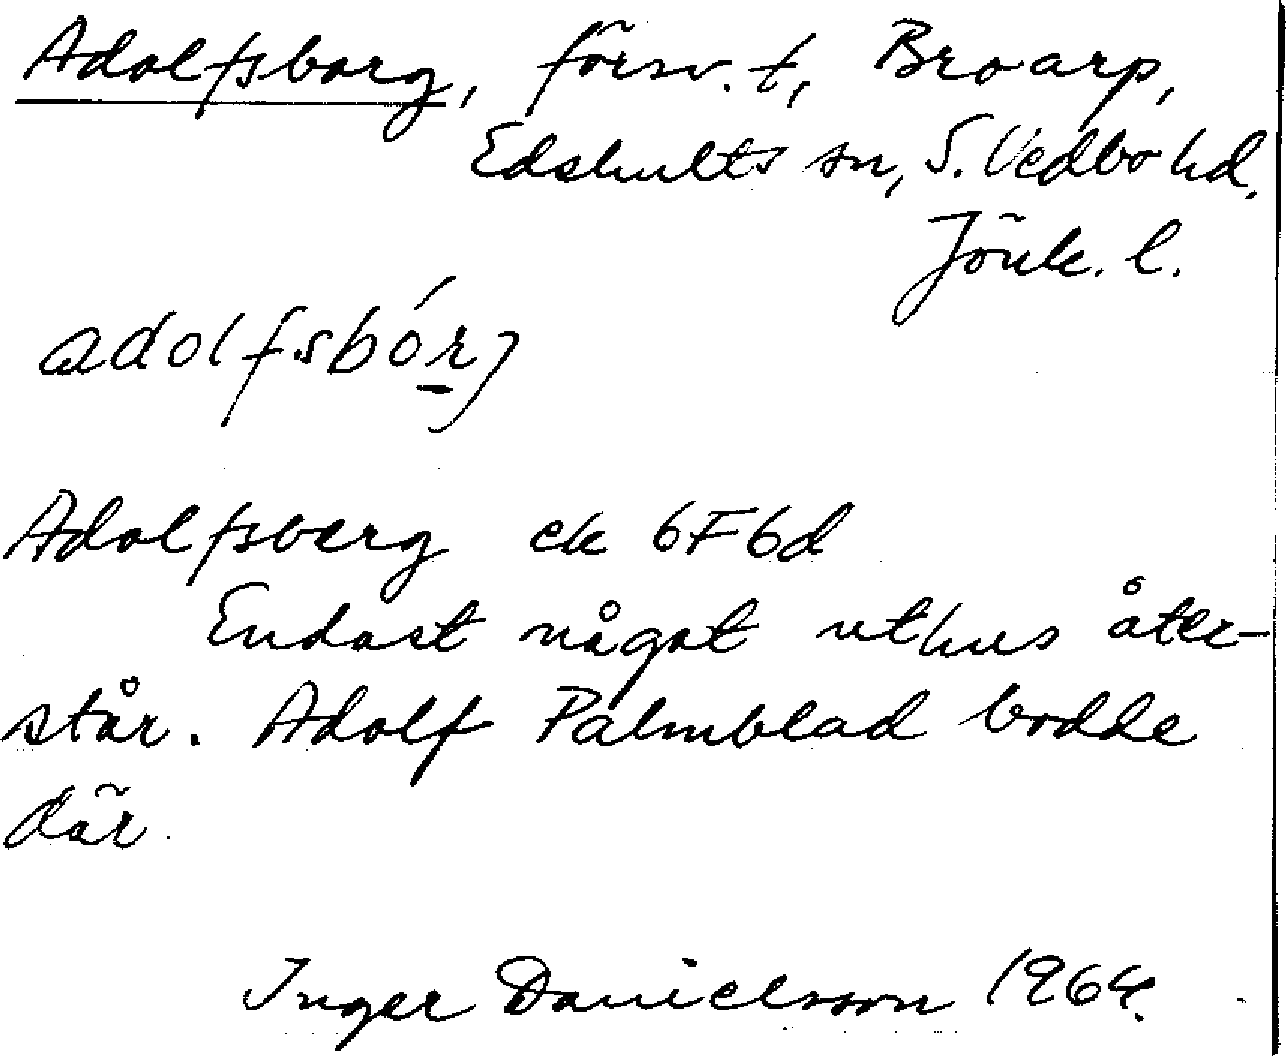 Adolfsborg, försv. t, Broarp,
Edshults sn, S. Vedbo hd.
Jönk. l.
adolfsbórj
Adolfsberg ek 6F6d
Endast något uthus åter-
står. Adolf Palmblad bodde
där.
Inger Danielsson 1964.